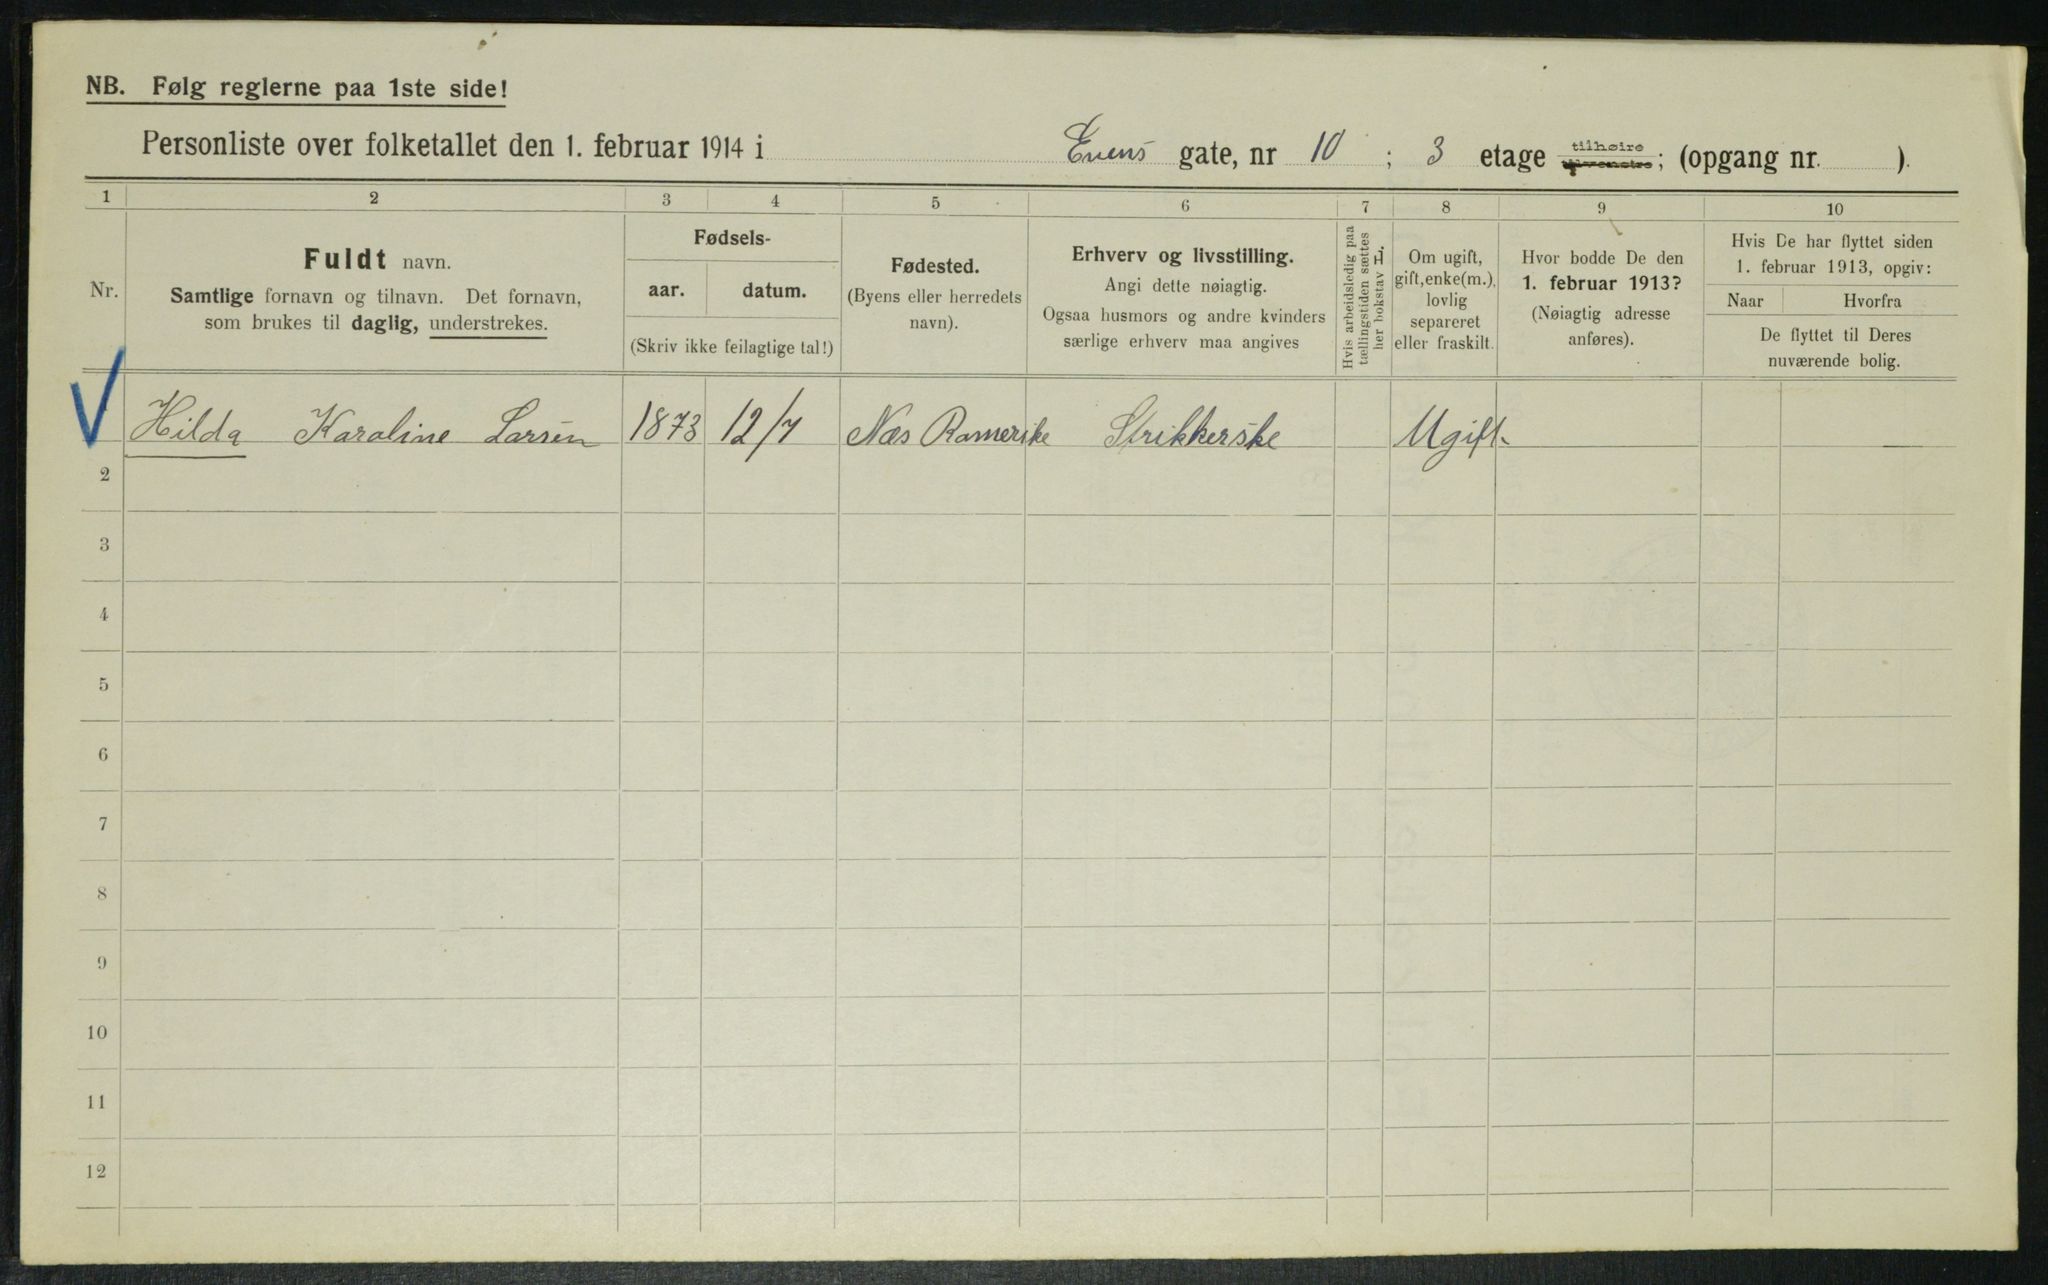 NB. Følg reglerne paa 1ste side!
Personliste over folketallet den 1. februar 1914 i Evens gate, nr 10 ; 3 etage tilhøire tilvenstre; (opgang nr. ).
1 2 3 4 5 6 7 8 9 10
Nr.
Fuldt navn.
Samtlige fornavn og tilnavn. Det fornavn,
som brukes til daglig, understrekes.
Fødsels-
aar. datum.
(Skriv ikke feilagtige tal!)
Fødested.
(Byens eller herredets
navn).
Erhverv og livsstilling.
Angi dette nøiagtig.
Ogsaa husmors og andre kvinders
særlige erhverv maa angives
Hvis arbeidsledig paa
tællingstiden sættes
her bokstav L.
Om ugift,
gift, enke(m.),
lovlig
separeret
eller fraskilt.
Hvor bodde De den
1. februar 1913?
(Nøiagtig adresse
anføres).
Hvis De har flyttet siden
1. februar 1913, opgiv:
Naar Hvorfra
De flyttet til Deres
nuværende bolig.
Hilda Karoline Larsen 1873 12/7 Næs Romerike Strikkerske Ugift.
2
3
4
5
6
7
8
9
10
11
12